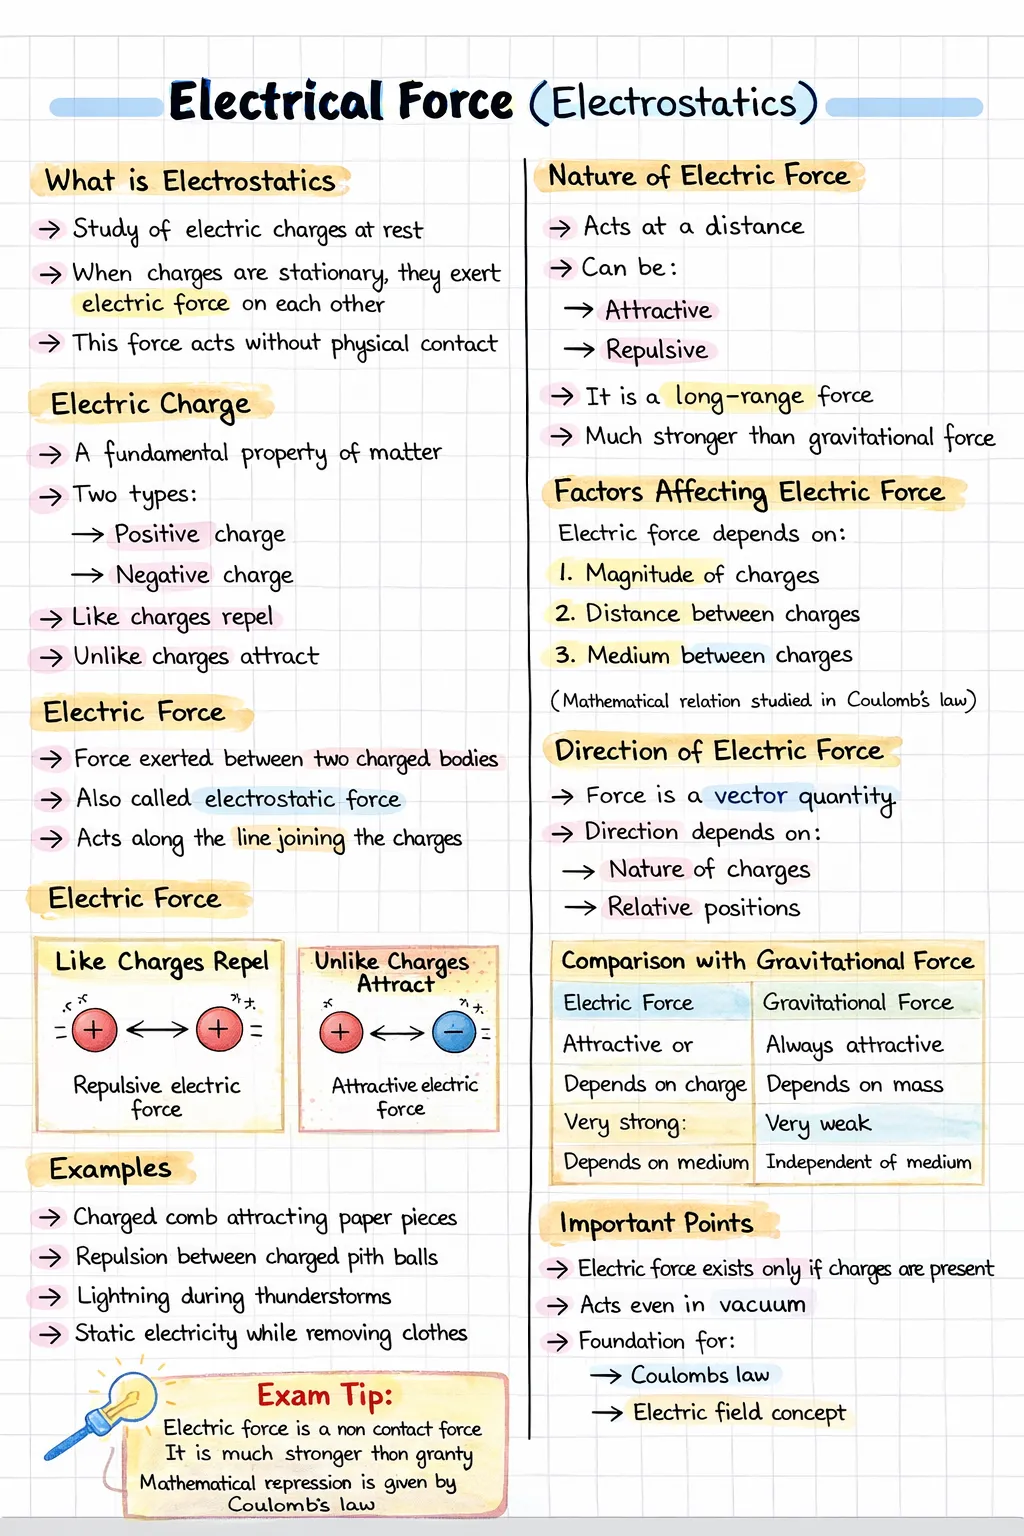 Electrical Force (Electrostatics)
What is Electrostatics
→ Study of electric charges at rest
→ When charges are stationary, they exert
electric force on each other
→ This force acts without physical contact
Electric Charge
→ A fundamental property of matter
→ Two types:
→ Positive charge
→ Negative charge
→ Like charges repel
→ Unlike charges attract
Electric Force
→ Force exerted between two charged bodies
→ Also called electrostatic force
→ Acts along the line joining the charges
Electric Force
Like Charges Repel
+ ↔ +
Repulsive electric
force
Unlike Charges
Attract
+ ↔ −
Attractive electric
force
Examples
→ Charged comb attracting paper pieces
→ Repulsion between charged pith balls
→ Lightning during thunderstorms
→ Static electricity while removing clothes
Exam Tip:
Electric force is a non contact force
It is much stronger thon granty
Mathematical repression is given by
Coulomb's law
Nature of Electric Force
→ Acts at a distance
→ Can be:
→ Attractive
→ Repulsive
→ It is a long-range force
→ Much stronger than gravitational force
Factors Affecting Electric Force
Electric force depends on:
1. Magnitude of charges
2. Distance between charges
3. Medium between charges
(Mathematical relation studied in Coulomb's law)
Direction of Electric Force
→ Force is a vector quantity.
→ Direction depends on:
→ Nature of charges
→ Relative positions
Comparison with Gravitational Force
Electric Force Gravitational Force
Attractive or Always attractive
Depends on charge Depends on mass
Very strong: Very weak
Depends on medium Independent of medium
Important Points
→ Electric force exists only if charges are present
→ Acts even in vacuum
→ Foundation for:
→ Coulombs law
→ Electric field concept